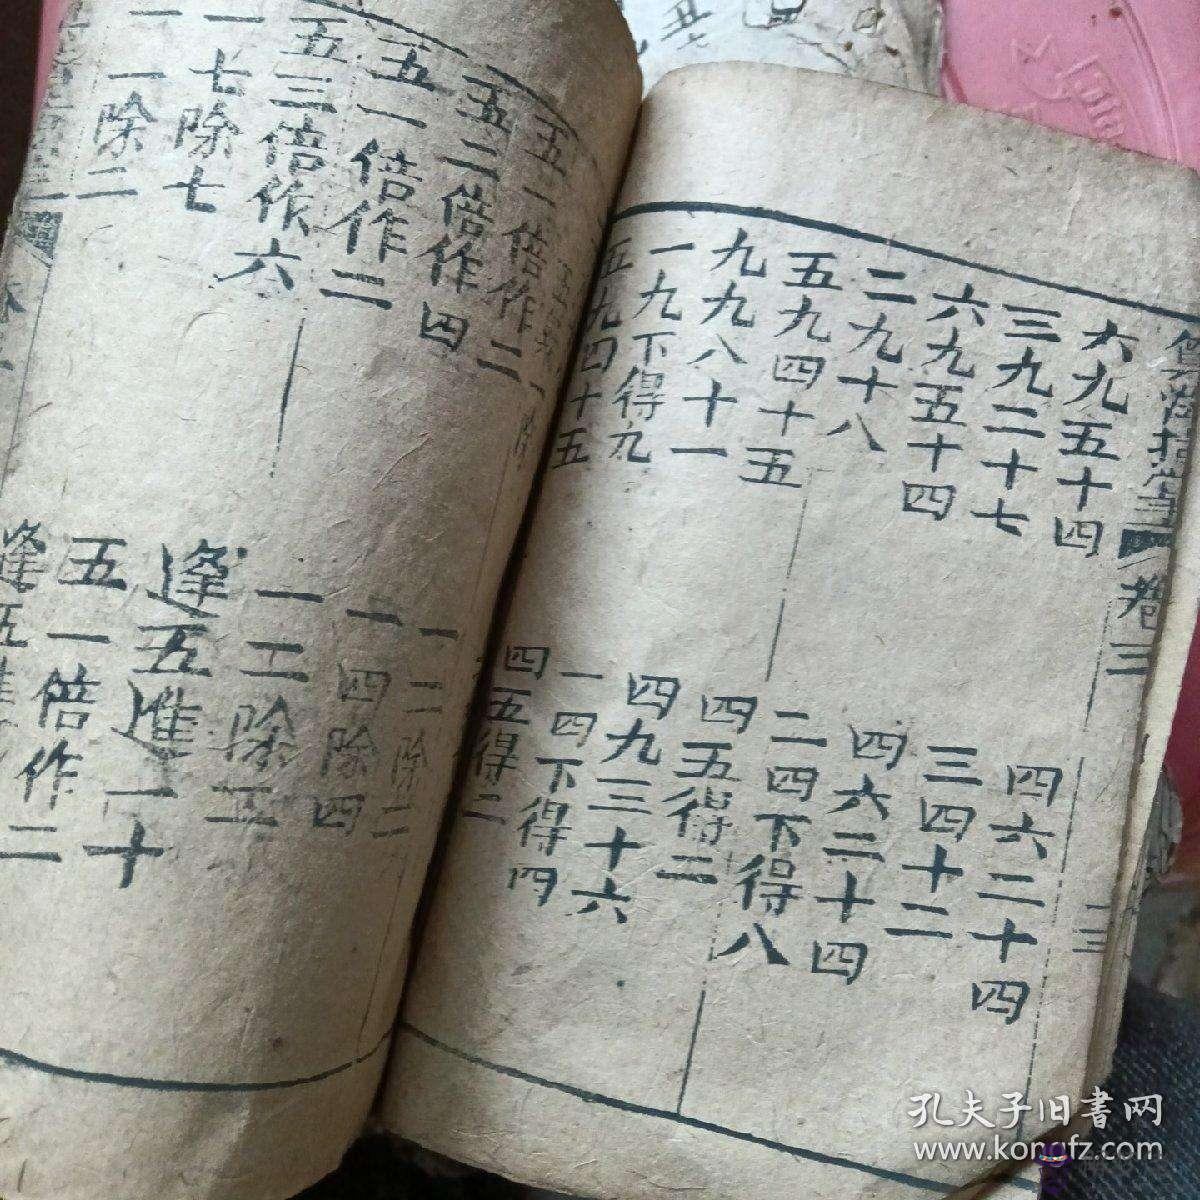 算法指掌 卷三
十三
六九五十四
三九二十七
六九五十四
二九十八
五九四十五
九九八十一
一九下得九
五九四十五
四六二十四
三四十二
四六二十四
二四下得八
四五得二
四九三十六
一四下得四
四五得二
五一倍作二
五二倍作四
五一倍作二
五三倍作六
一七除七
一一除二
一二除二
一四除四
一二除五
逢五進一十
五一倍作二
逢五進
孔夫子旧書网
www.kongfz.com